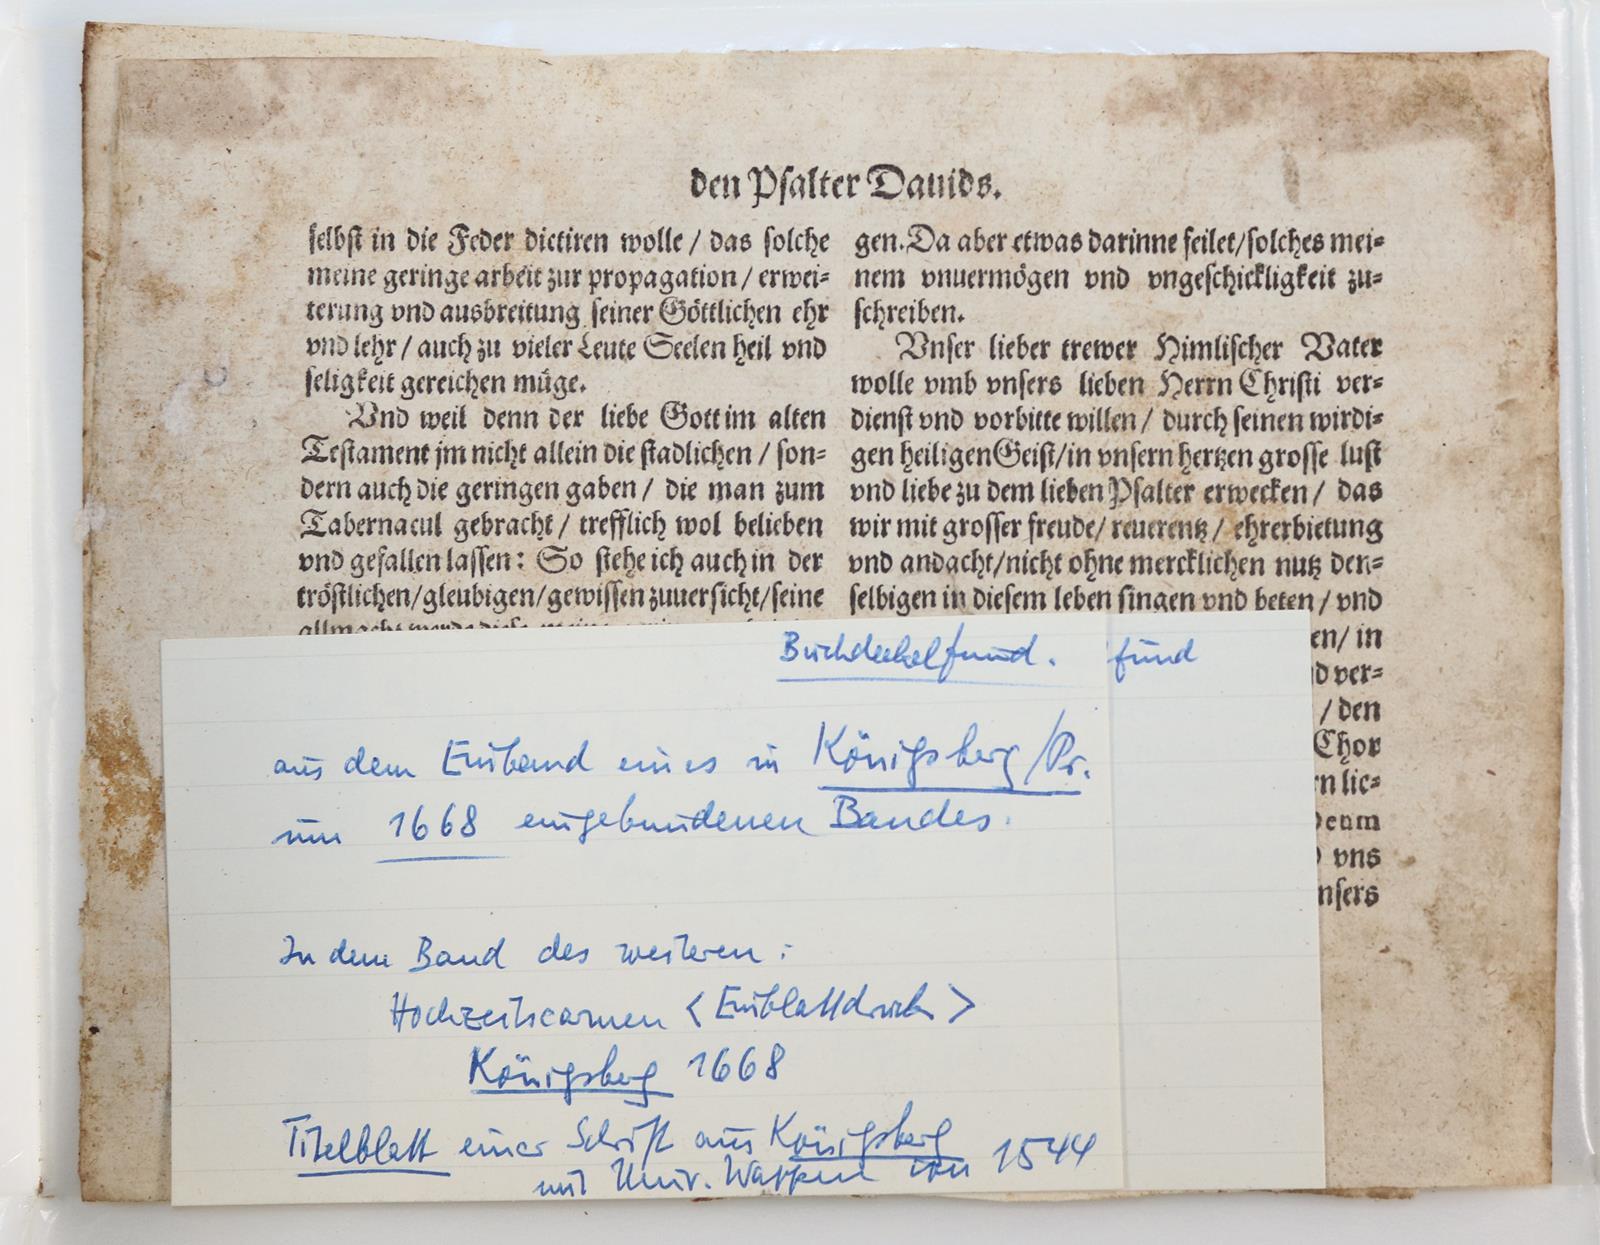 den Psalter Dauids.
selbst in die Feder dictiren wolle / das solche
meine geringe arbeit zur propagation / erwei⸗
terung vnd ausbreitung seiner Göttlichen ehr
vnd lehr / auch zu vieler Leute Seelen heil vnd
seligkeit gereichen müge.
Vnd weil denn der liebe Gott im alten
Testament jm nicht allein die stadlichen / son⸗
dern auch die geringen gaben / die man zum
Tabernacul gebracht / trefflich wol belieben
vnd gefallen lassen: So stehe ich auch in der
tröstlichen/gleubigen/gewissen zuuersicht/seine
gen. Da aber etwas darinne feilet/solches mei⸗
nem vnuermögen vnd vngeschickligkeit zu⸗
schreiben.
Vnser lieber trewer Himlischer Vater
wolle vmb vnsers lieben Herrn Christi ver⸗
dienst vnd vorbitte willen / durch seinen wirdi⸗
gen heiligen Geist/in vnsern hertzen grosse lust
vnd liebe zu dem lieben Psalter erwecken / das
wir mit grosser freude/ reuerentz / ehrerbietung
vnd andacht/nicht ohne mercklichen nutz den⸗
selbigen in diesem leben singen vnd beten / vnd
en/ in
d ver⸗
/ den
Chor
rn lie⸗
deum
vns
nsers
Buchdeckelfund. fund
aus dem Einband eines in Königsberg/Pr.
um 1668 eingebundenen Bandes.
In dem Band des weiteren:
Hochzeitscarmen <Einblattdruck>
Königsberg 1668
Titelblatt einer Schrift aus Königsberg
mit Univ. Wappen von 1544